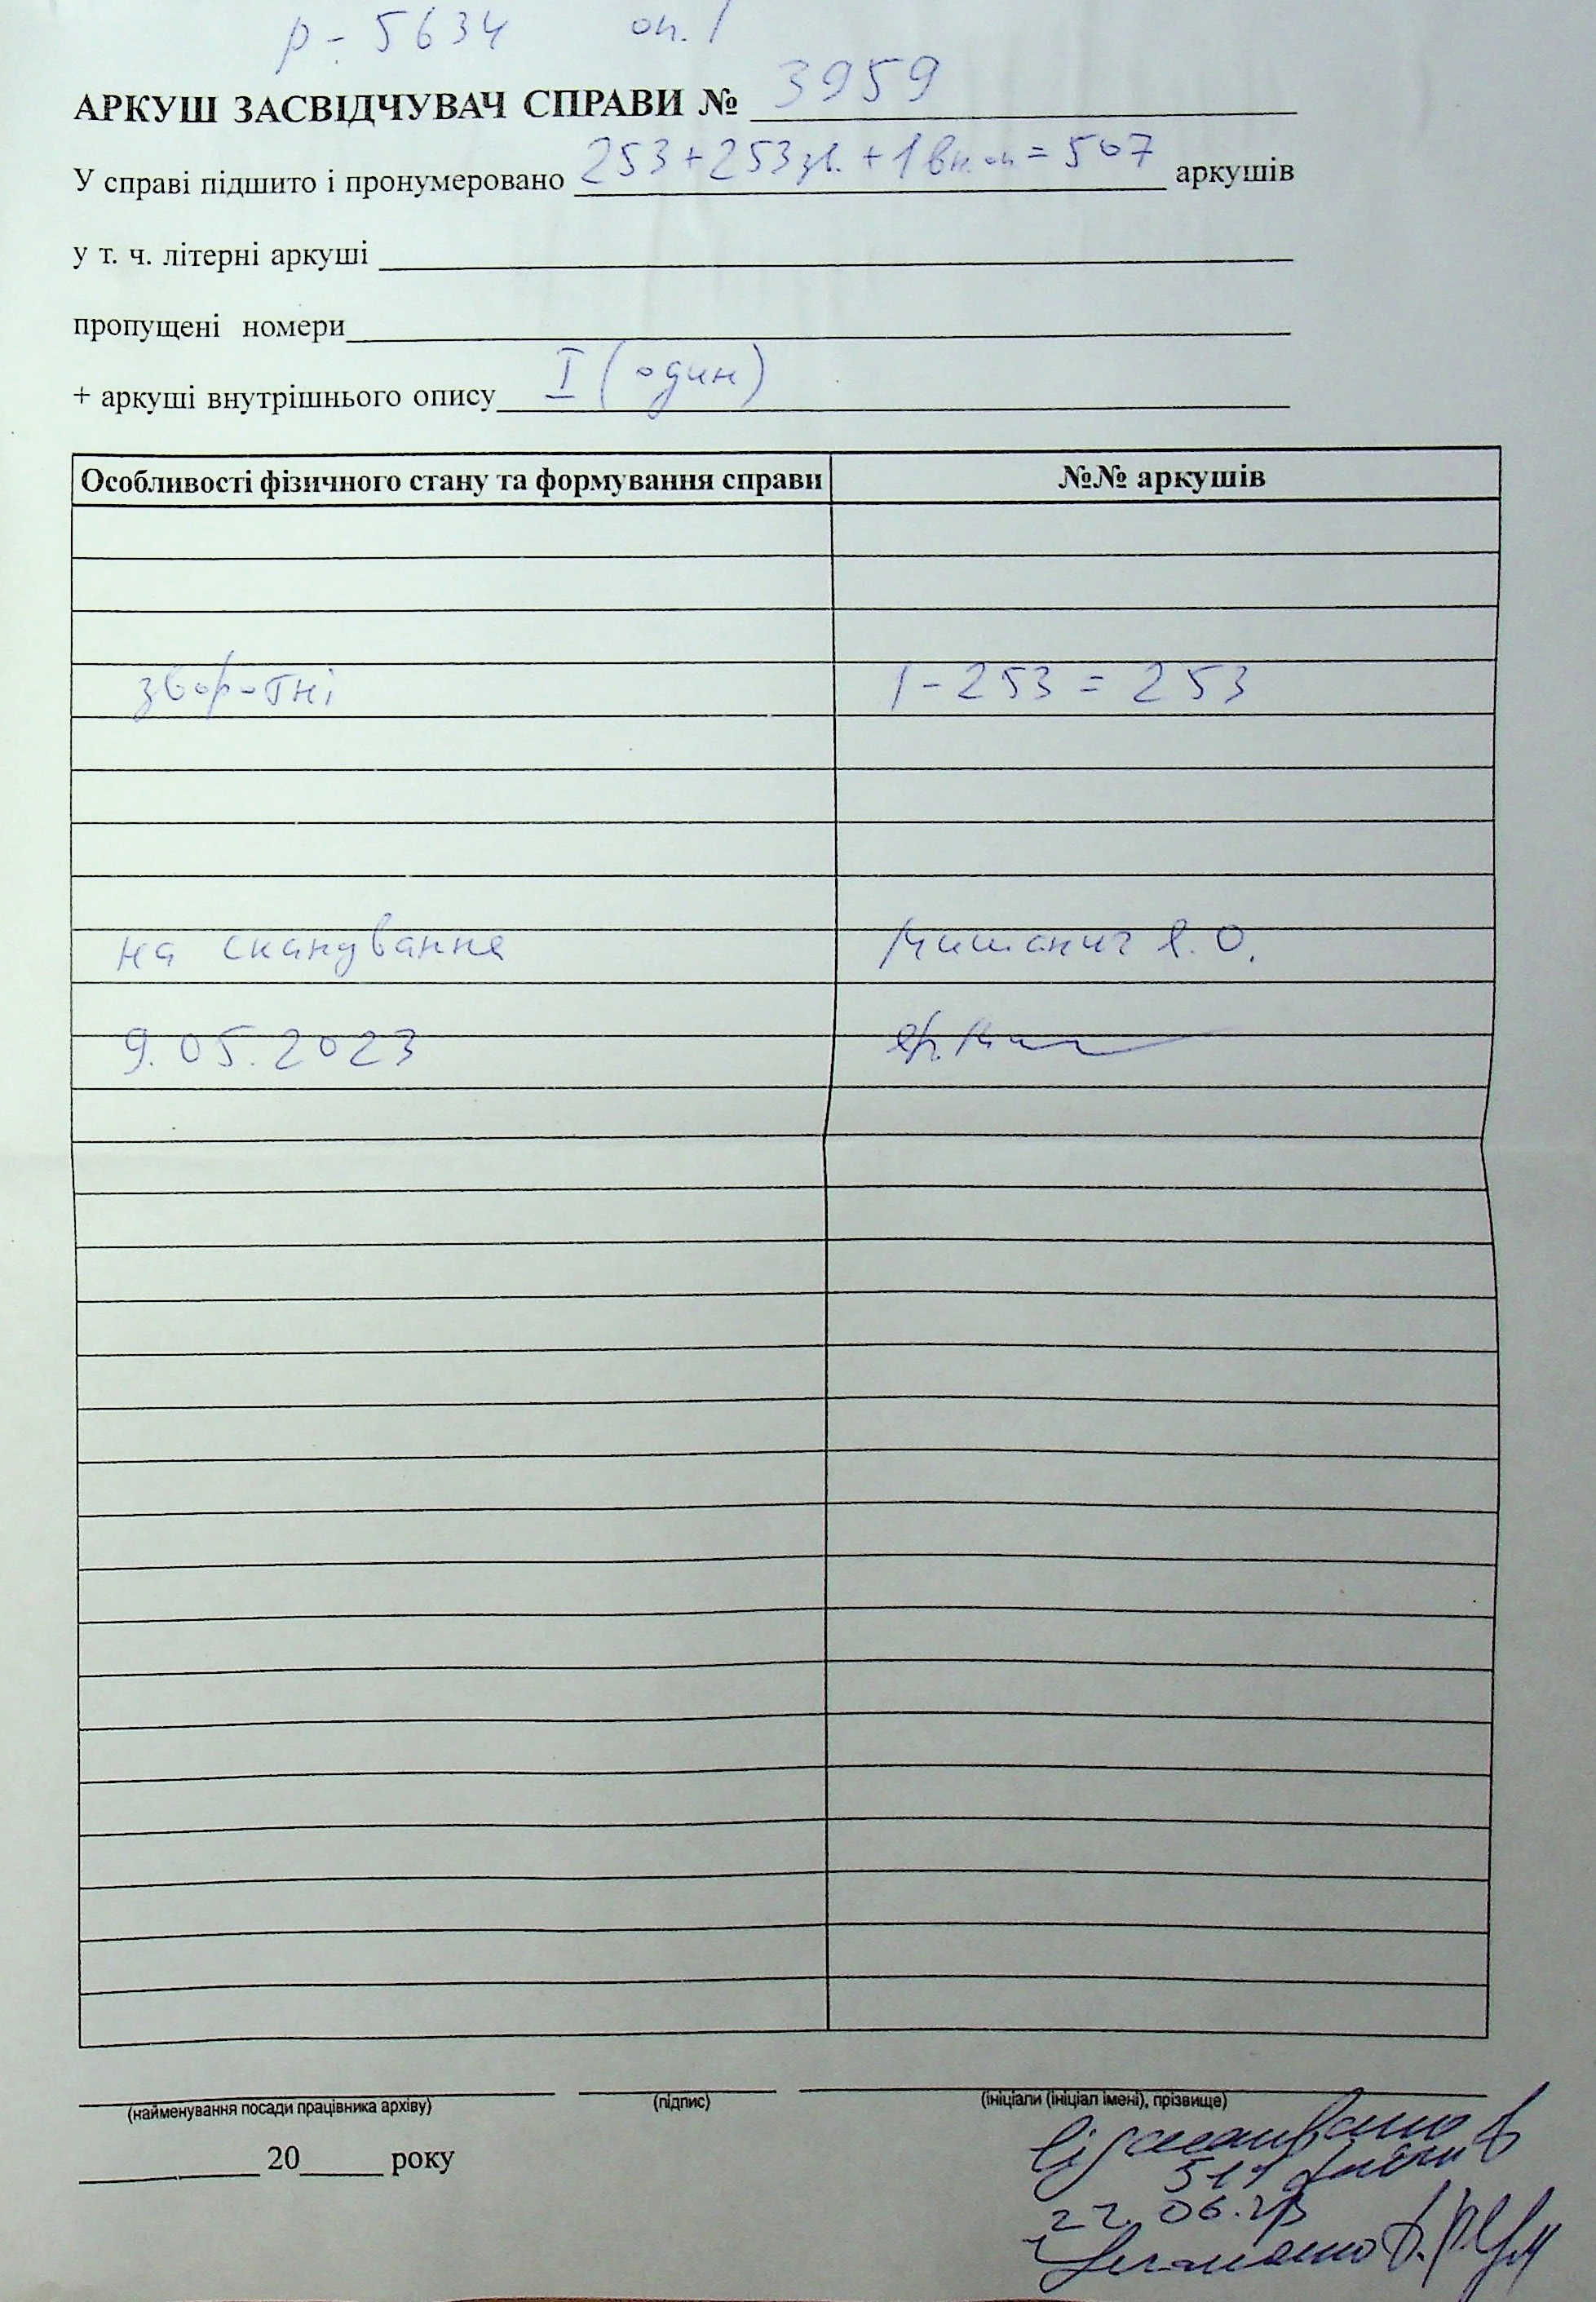 р-5634 оп. 1
АРКУШ ЗАСВІДЧУВАЧ СПРАВИ № 3959
У справі підшито і пронумеровано 253+253зв.+1вн.оп=507 аркушів
у т. ч. літерні аркуші
пропущені номери
+ аркуші внутрішнього опису I (один)
Особливості фізичного стану та формування справи №№ аркушів
зворотні 1-253=253
на сканування Мишанич Я.О.
9.05.2023
(найменування посади працівника архіву) (підпис) (ініціали (ініціал імені), прізвище)
20 року
Відскановано
511 файлів
22.06.23